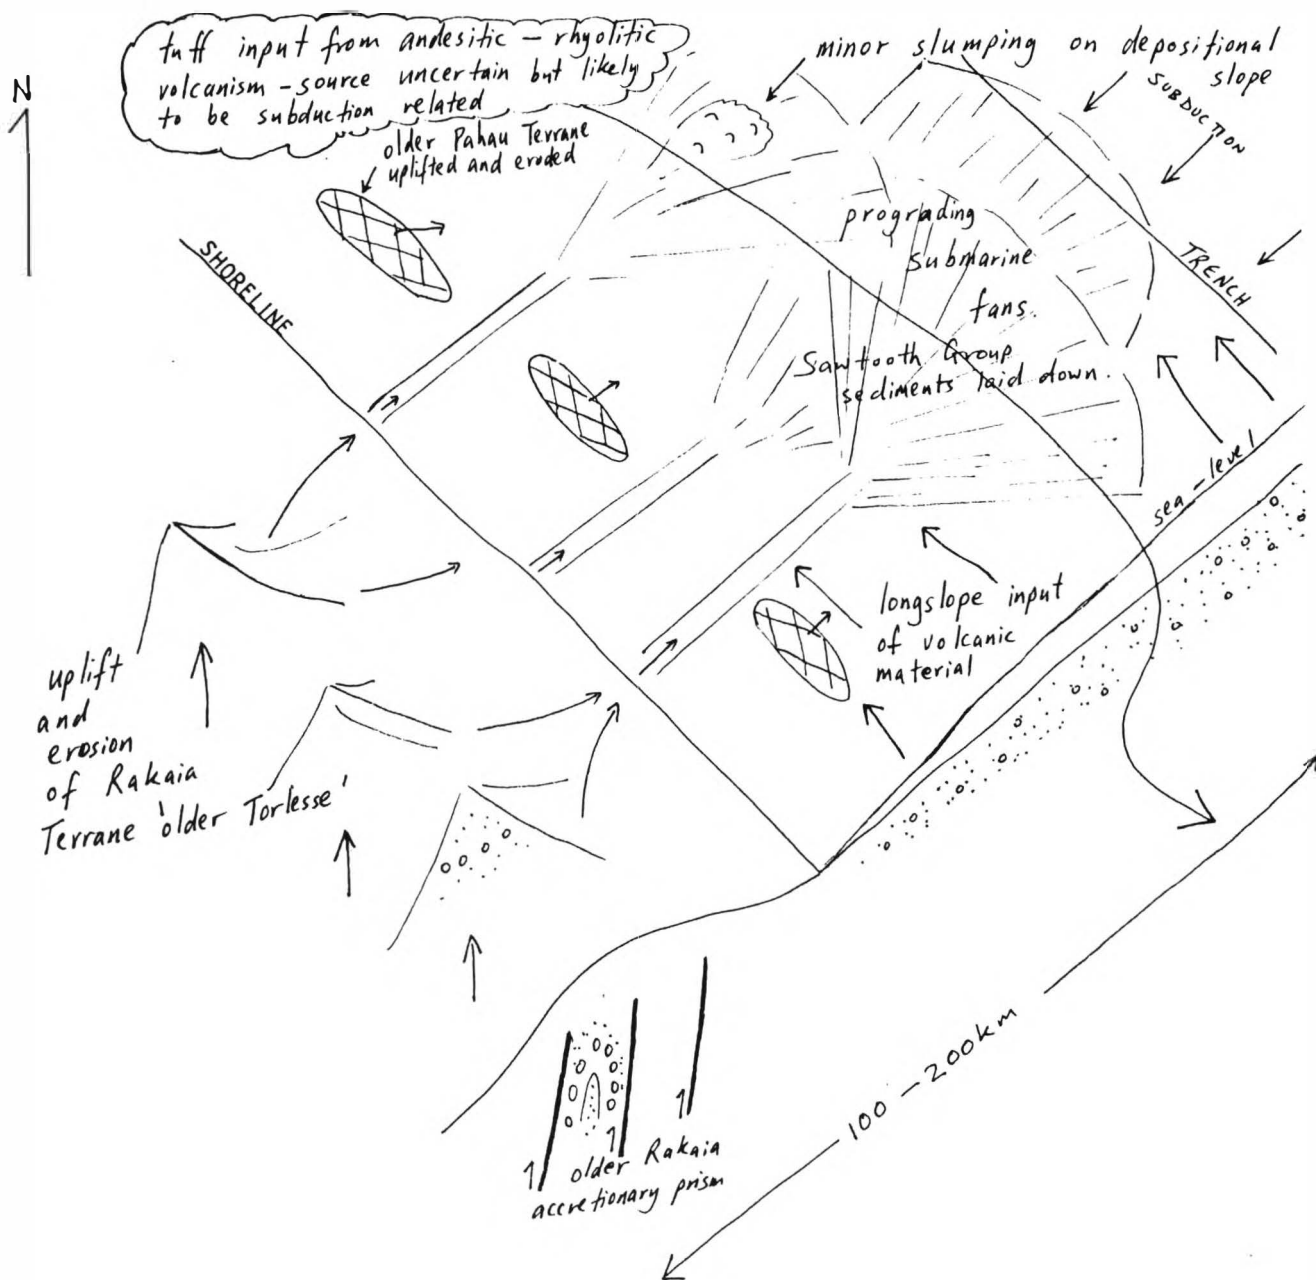 tuff input from andesitic – rhyolitic
volcanism – source uncertain but likely
to be subduction related
minor slumping on depositional
slope
N
SUBDUCTION
older Pahau Terrane
uplifted and eroded
SHORELINE
prograding
submarine
fans.
TRENCH
Sawtooth Group
sediments laid down.
sea-level
longslope input
of volcanic
material
uplift
and
erosion
of Rakaia
Terrane 'older Torlesse'
100 – 200km
older Rakaia
accretionary prism